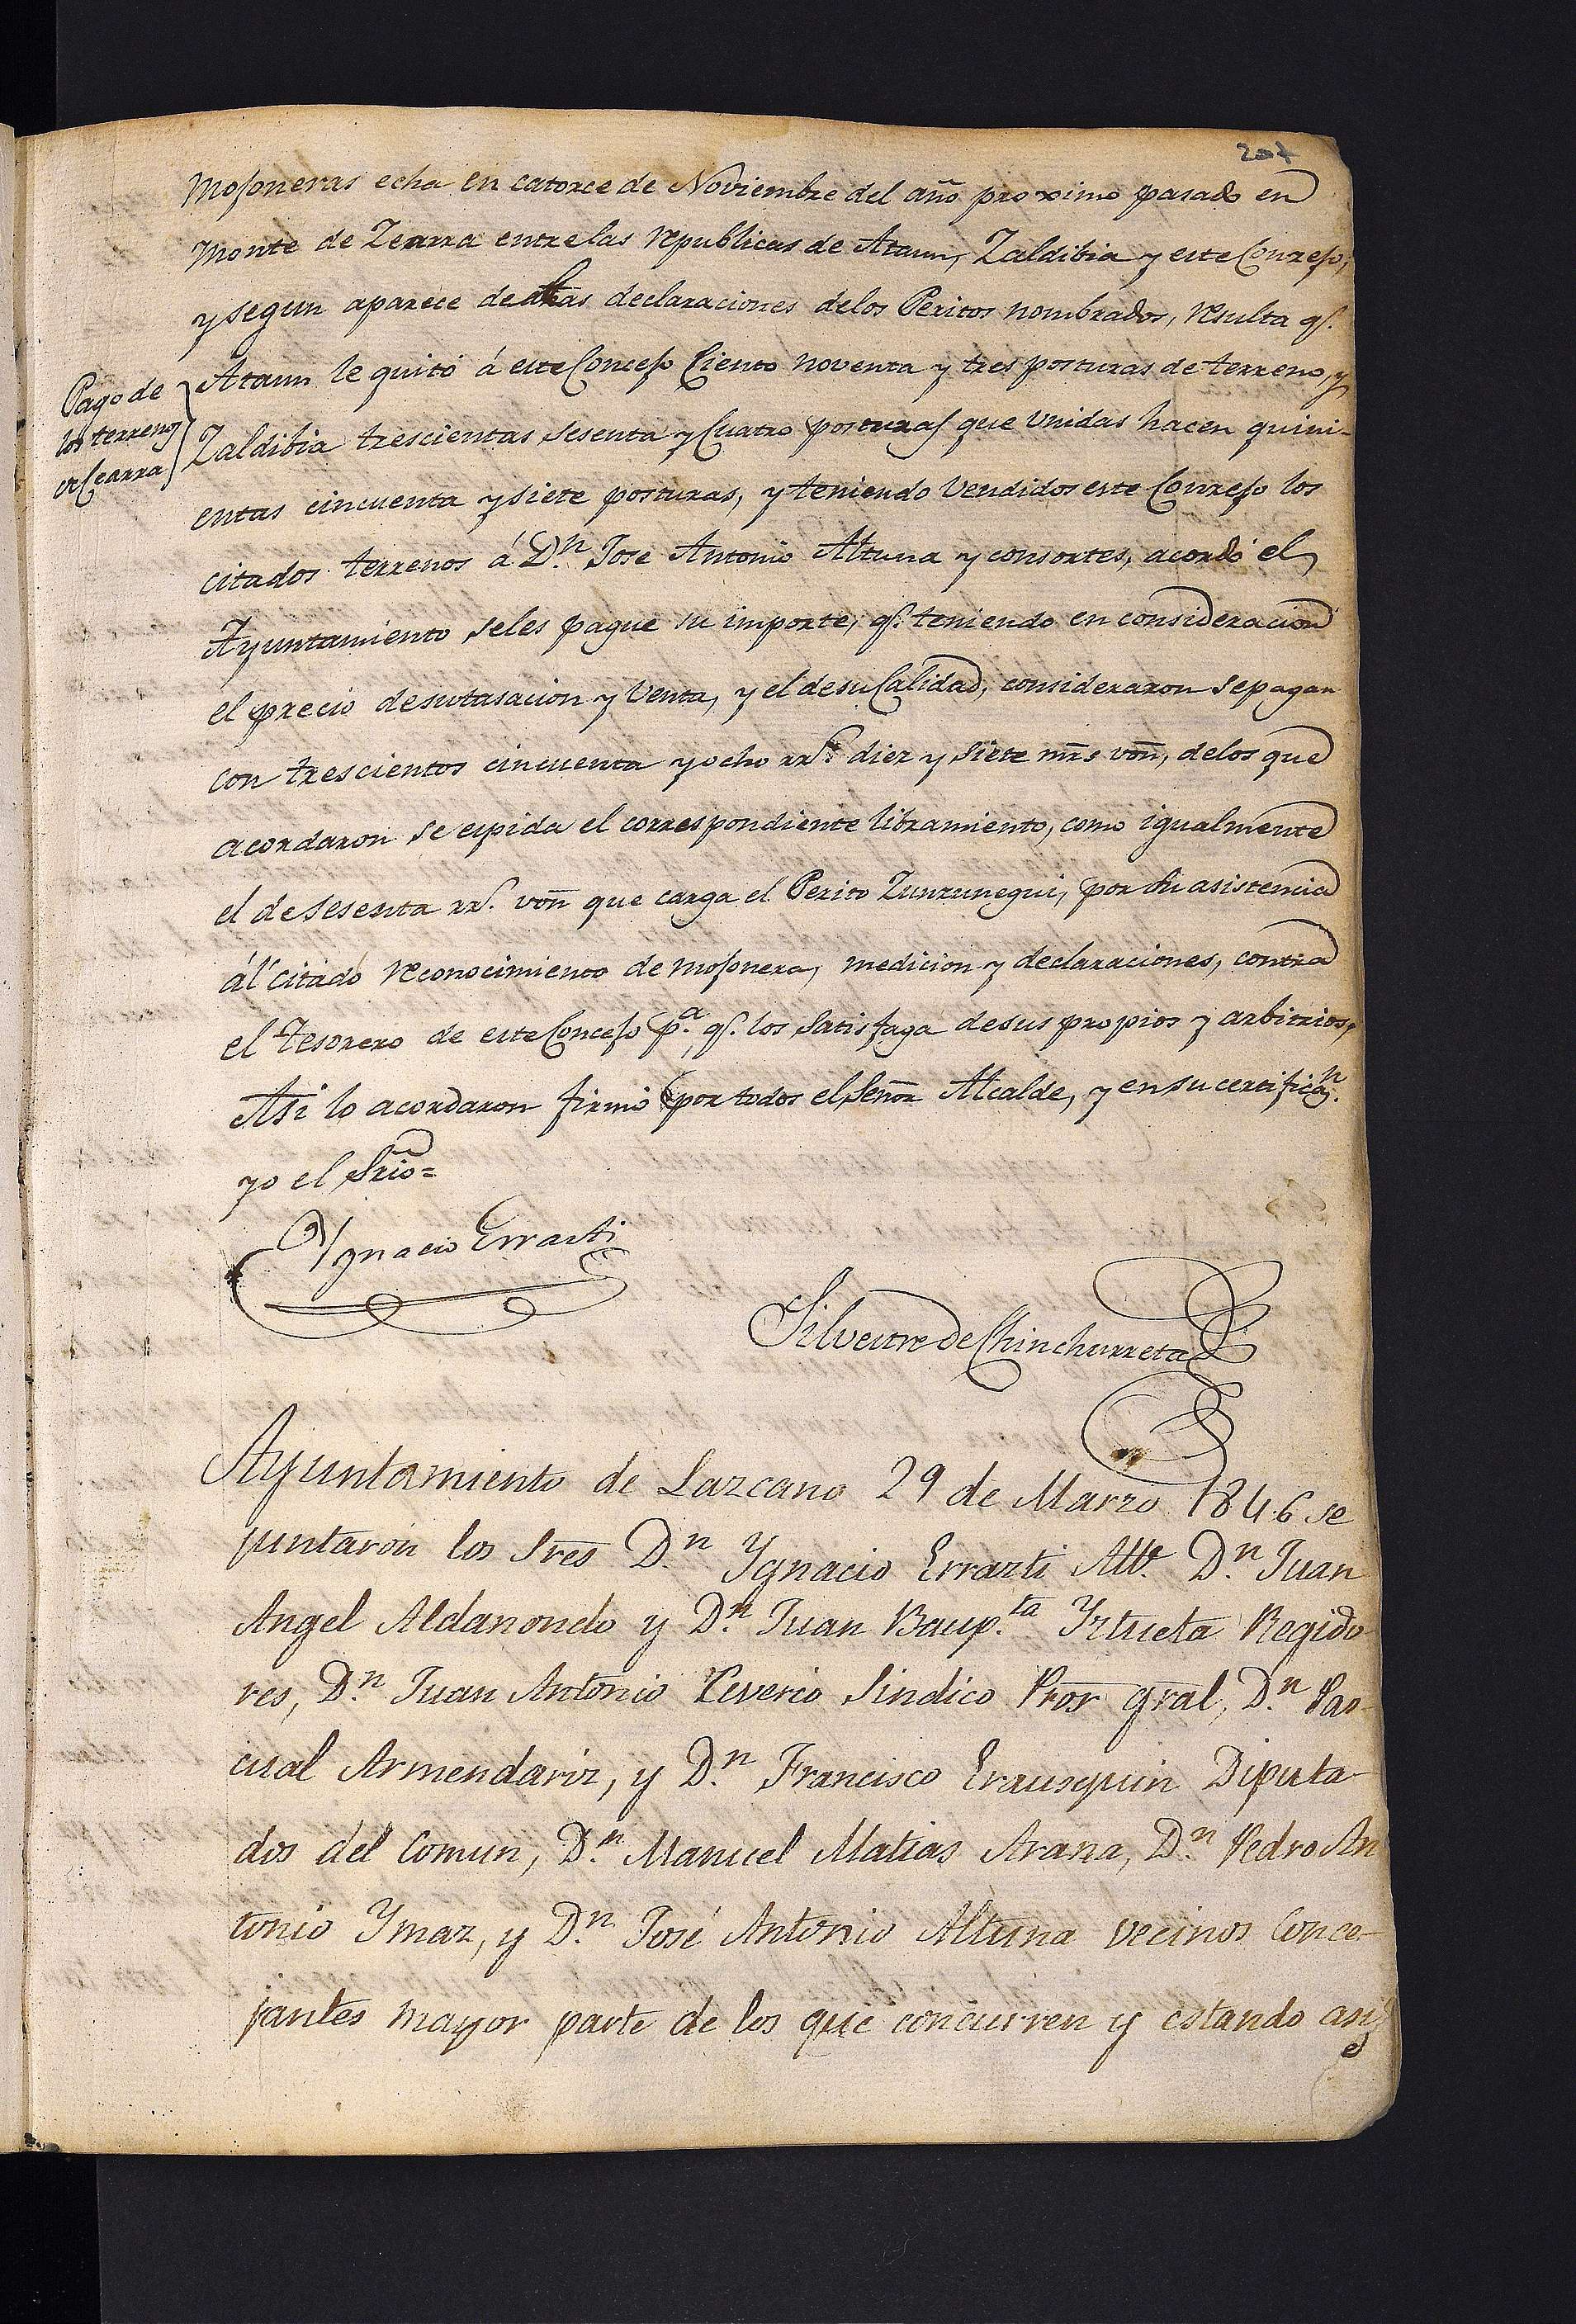 207
Mojoneras echa en catorce de Noviembre del año proximo pasado en
Monte de Zearra entre las republicas de Ataun, Zaldibia y este Conzejo,
y segun aparece de dhas declaraciones delos Peritos nombrados, resulta q.e
Pago de
los terrenos
de Cearra
Ataun le quitó á este Concejo Ciento noventa y tres posturas de terreno, y
Zaldibia trescientas sesenta y Cuatro posturas que unidas hacen quini-
entas cincuenta y siete posturas, y teniendo Vendidos este Conzejo los
citados terrenos á D.n Jose Antonio Altuna y consortes, acordó el
Ayuntamiento seles pague su importe, q.e teniendo en consideracion
el precio desutasacion y Venta, y el desu Calidad, consideraron sepagan
con trescientos cincuenta y ocho rr.s diez y siete mrs von, delos que
acordaron se espida el correspondiente libramiento, como igualmente
el de sesenta rr.s von que carga el Perito Zunzunegui, por su asistencia
ál citado reconocimiento de mojonera, medicion y declaraciones, contra
el Tesorero de este Concejo p.a q.e los Satisfaga desus propios y arbitrios,
Asi lo acordaron firmó por todos el Señor Alcalde, y en su certificán.
yo el Srio=
Ygnacio Errasti
Silvestre de Chinchurreta
Ayuntamiento de Lazcano 29 de Marzo 1846 se
juntaron los Sres D.n Ygnacio Errazti Alle. D.n Juan
Angel Aldanondo y D.n Juan Baup.ta Yztueta Regido-
res, D.n Juan Antonio Severio Sindico Pror gral, D.n Pas-
cual Armendariz, y D.n Francisco Erausquin Diputa-
dos del Comun, D.n Manuel Matias Arana, D.n Pedro An
tonio Ymaz, y D.n José Antonio Altuna vecinos Conce-
jantes mayor parte de los que concurren y estando asi